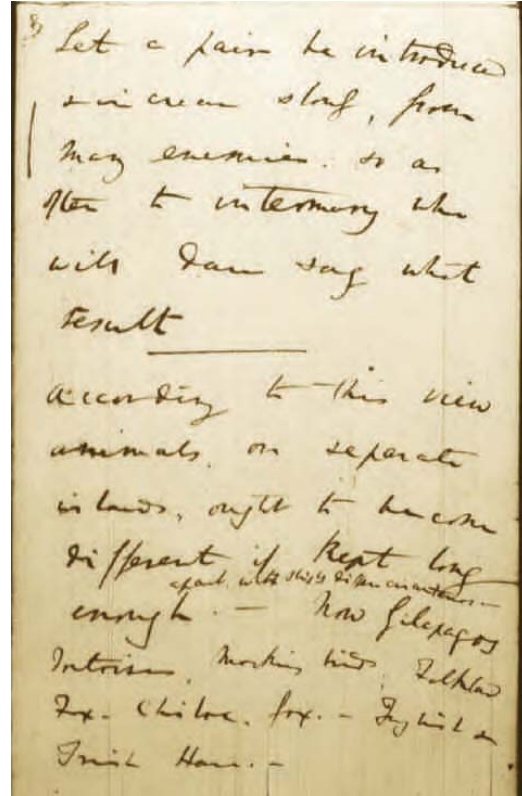 Let a pair be introduced
& increase slowly, from
many enemies, so as
often to intermarry who
will dare say what
result
According to this view
animals, on separate
islands, ought to become
different if kept long
apart, with slightly differ circumstances. —
enough. — Now Galapagos
Tortoises, Mocking birds; Falkland
Fox — Chiloe, fox, — English &
Irish Hare. —